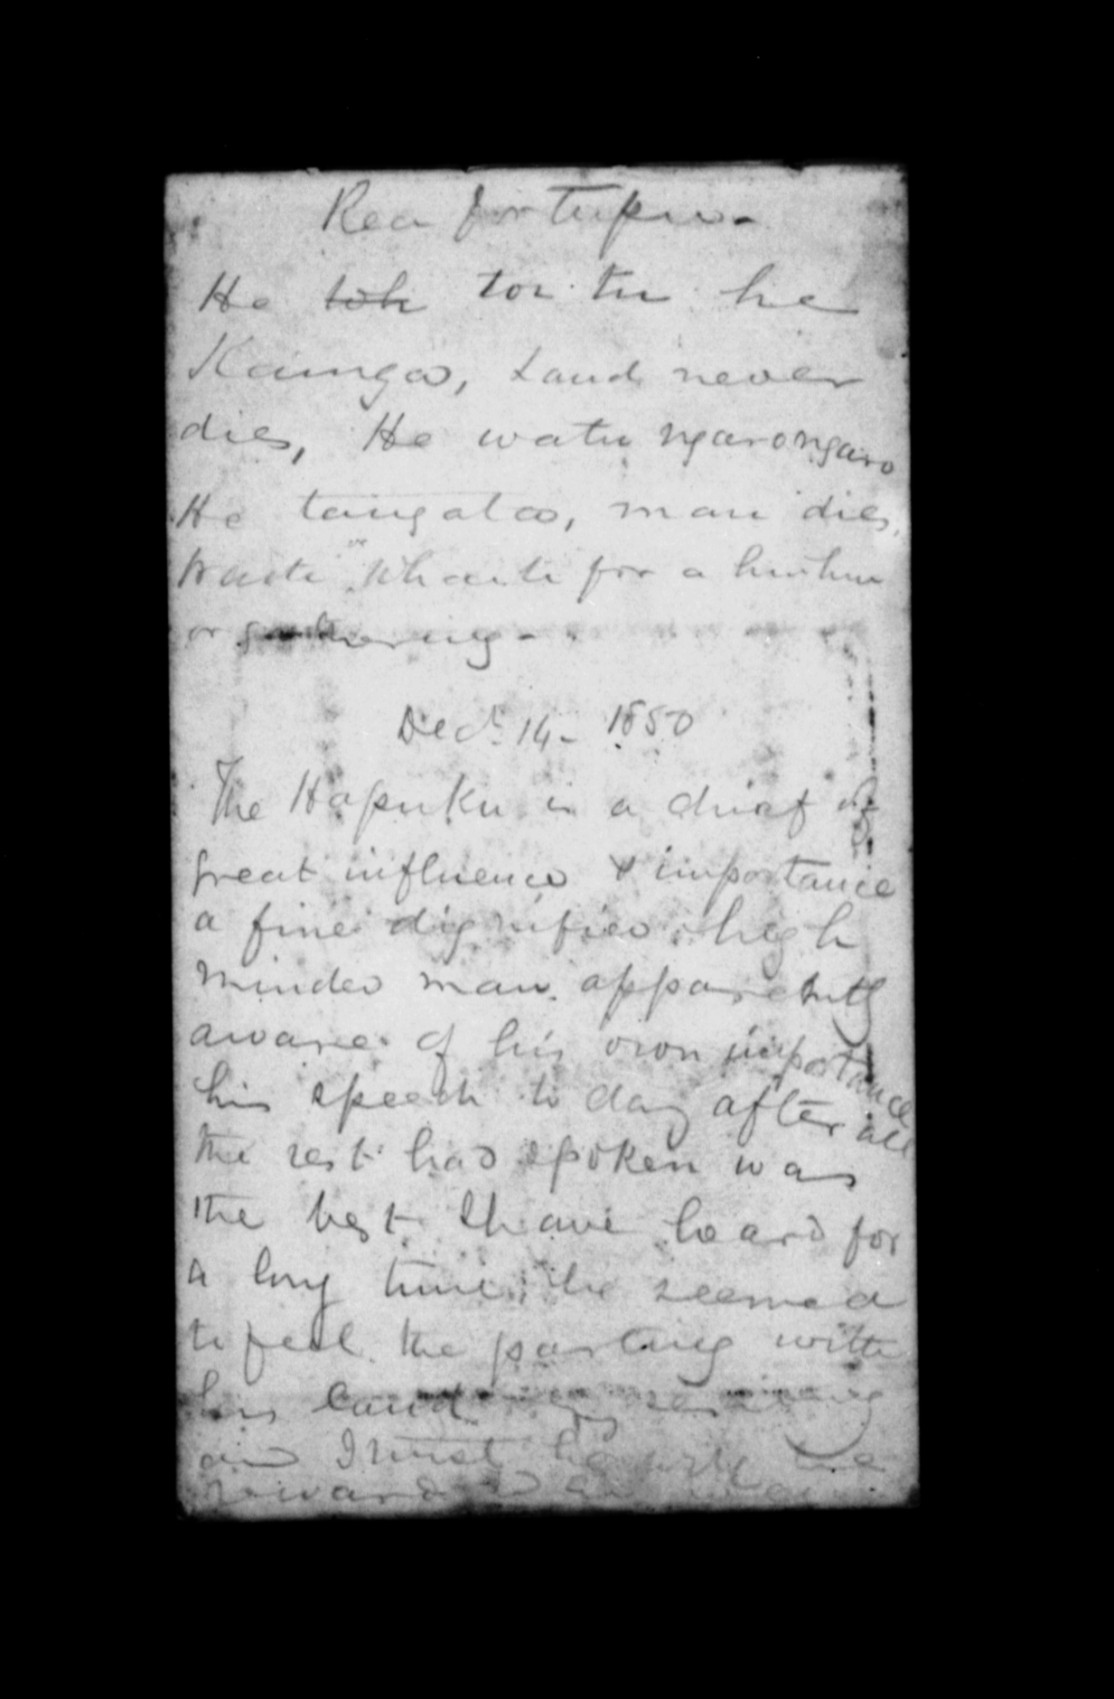 Rea for tupu -
He toh toi tu he
Kainga, Land never
dies, He watu ngarongaro
He tangata, man dies,
Waate or Whaate for a huihui
or gathering -
Decr 14 - 1850
The Hapuku is a chief of
great influence & importance
a fine dignified high
minded man apparently
aware of his own importance
his speech to day after all
the rest had spoken was
the best I have heard for
a long time, he seemed
to feel the parting with
his land
and I trust he will be